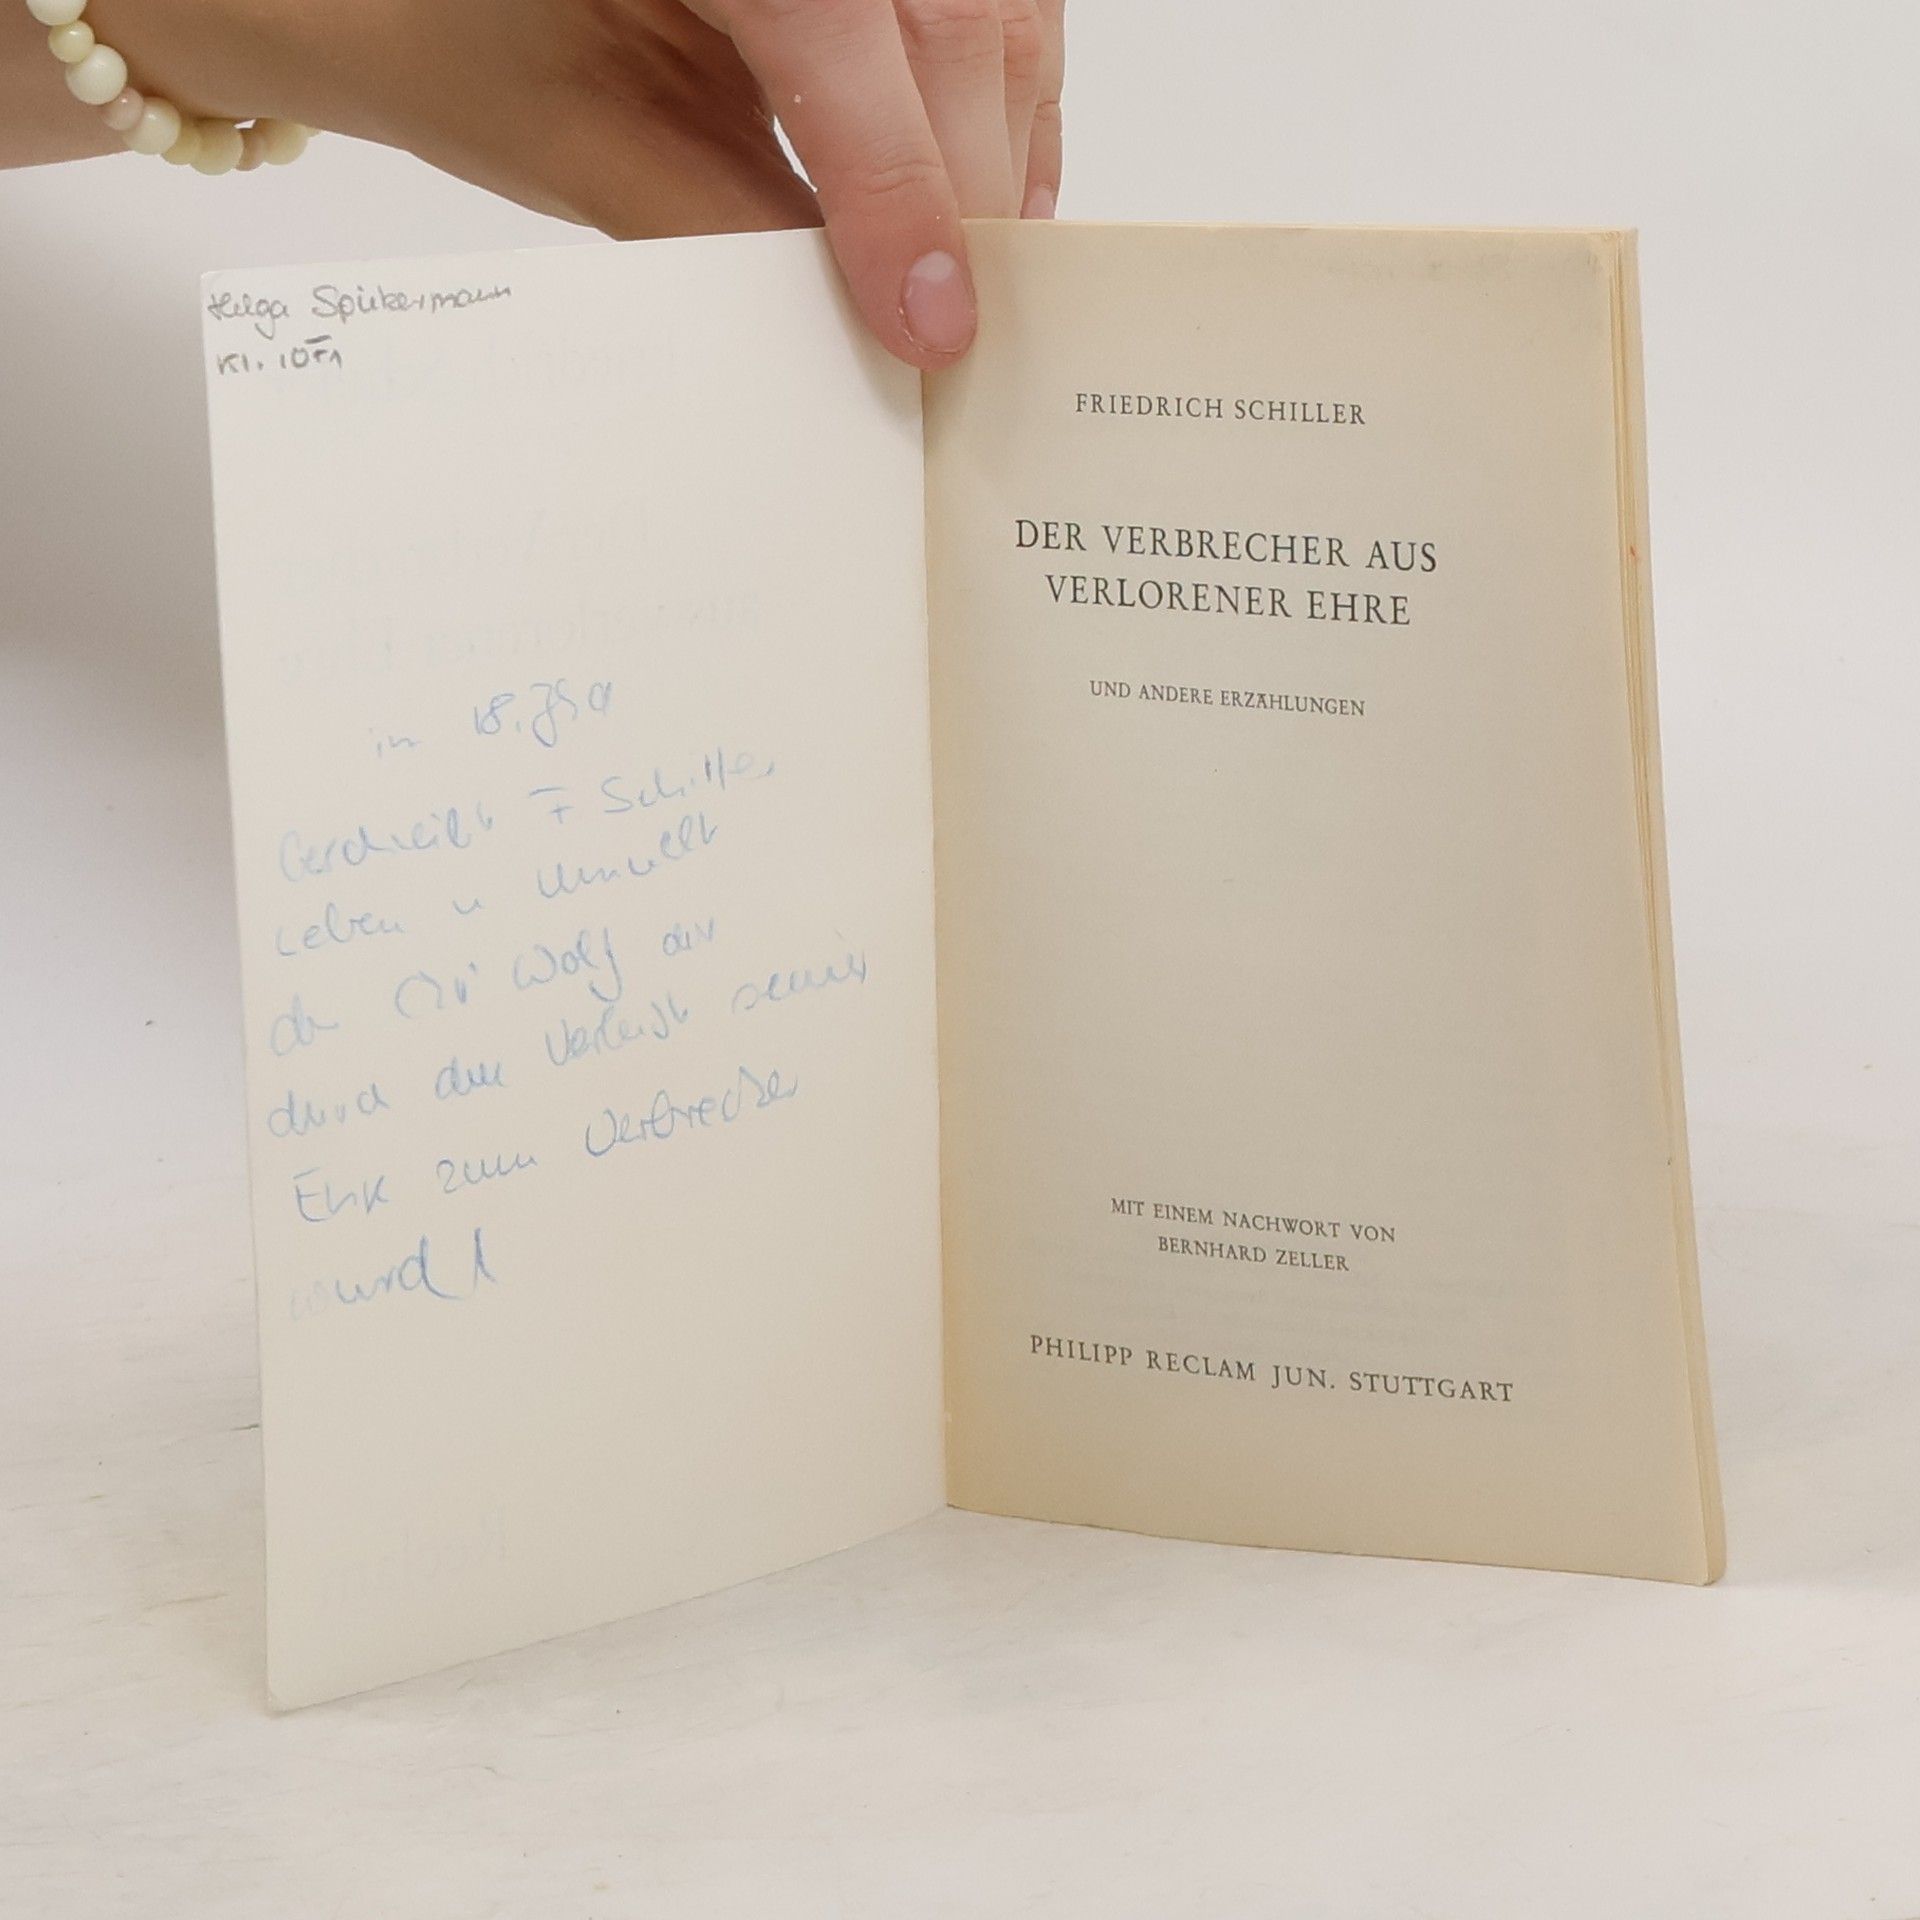 Helga Spiekermann
Kl. 10
in 18.
F Schiller
Leben u Umwelt
Wolf der
durch den Verlust seiner
Ehre zum Verbrecher
wurd
FRIEDRICH SCHILLER
DER VERBRECHER AUS
VERLORENER EHRE
UND ANDERE ERZÄHLUNGEN
MIT EINEM NACHWORT VON
BERNHARD ZELLER
PHILIPP RECLAM JUN. STUTTGART